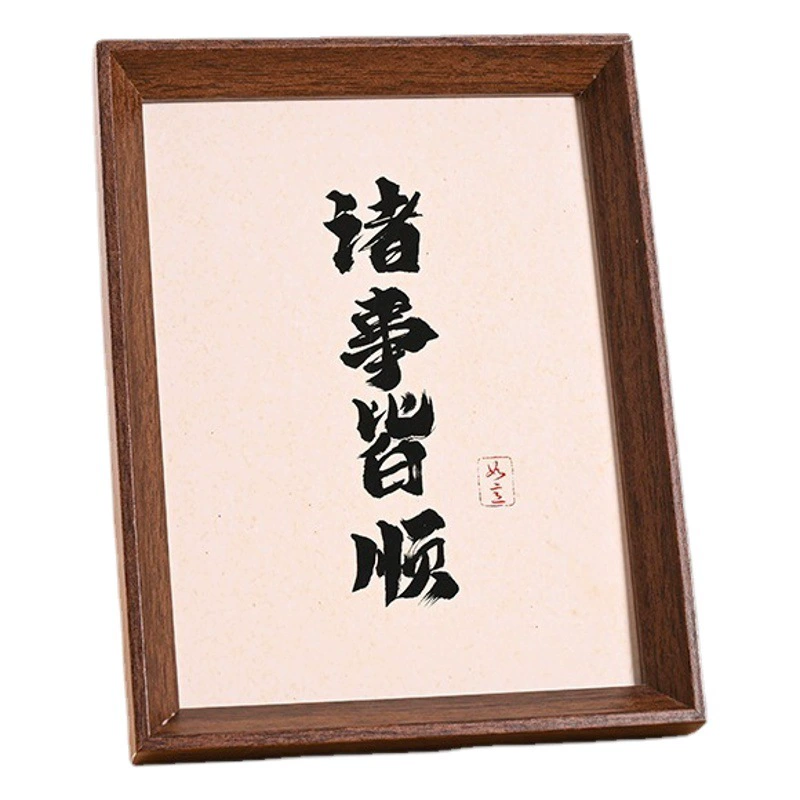 诸事皆顺